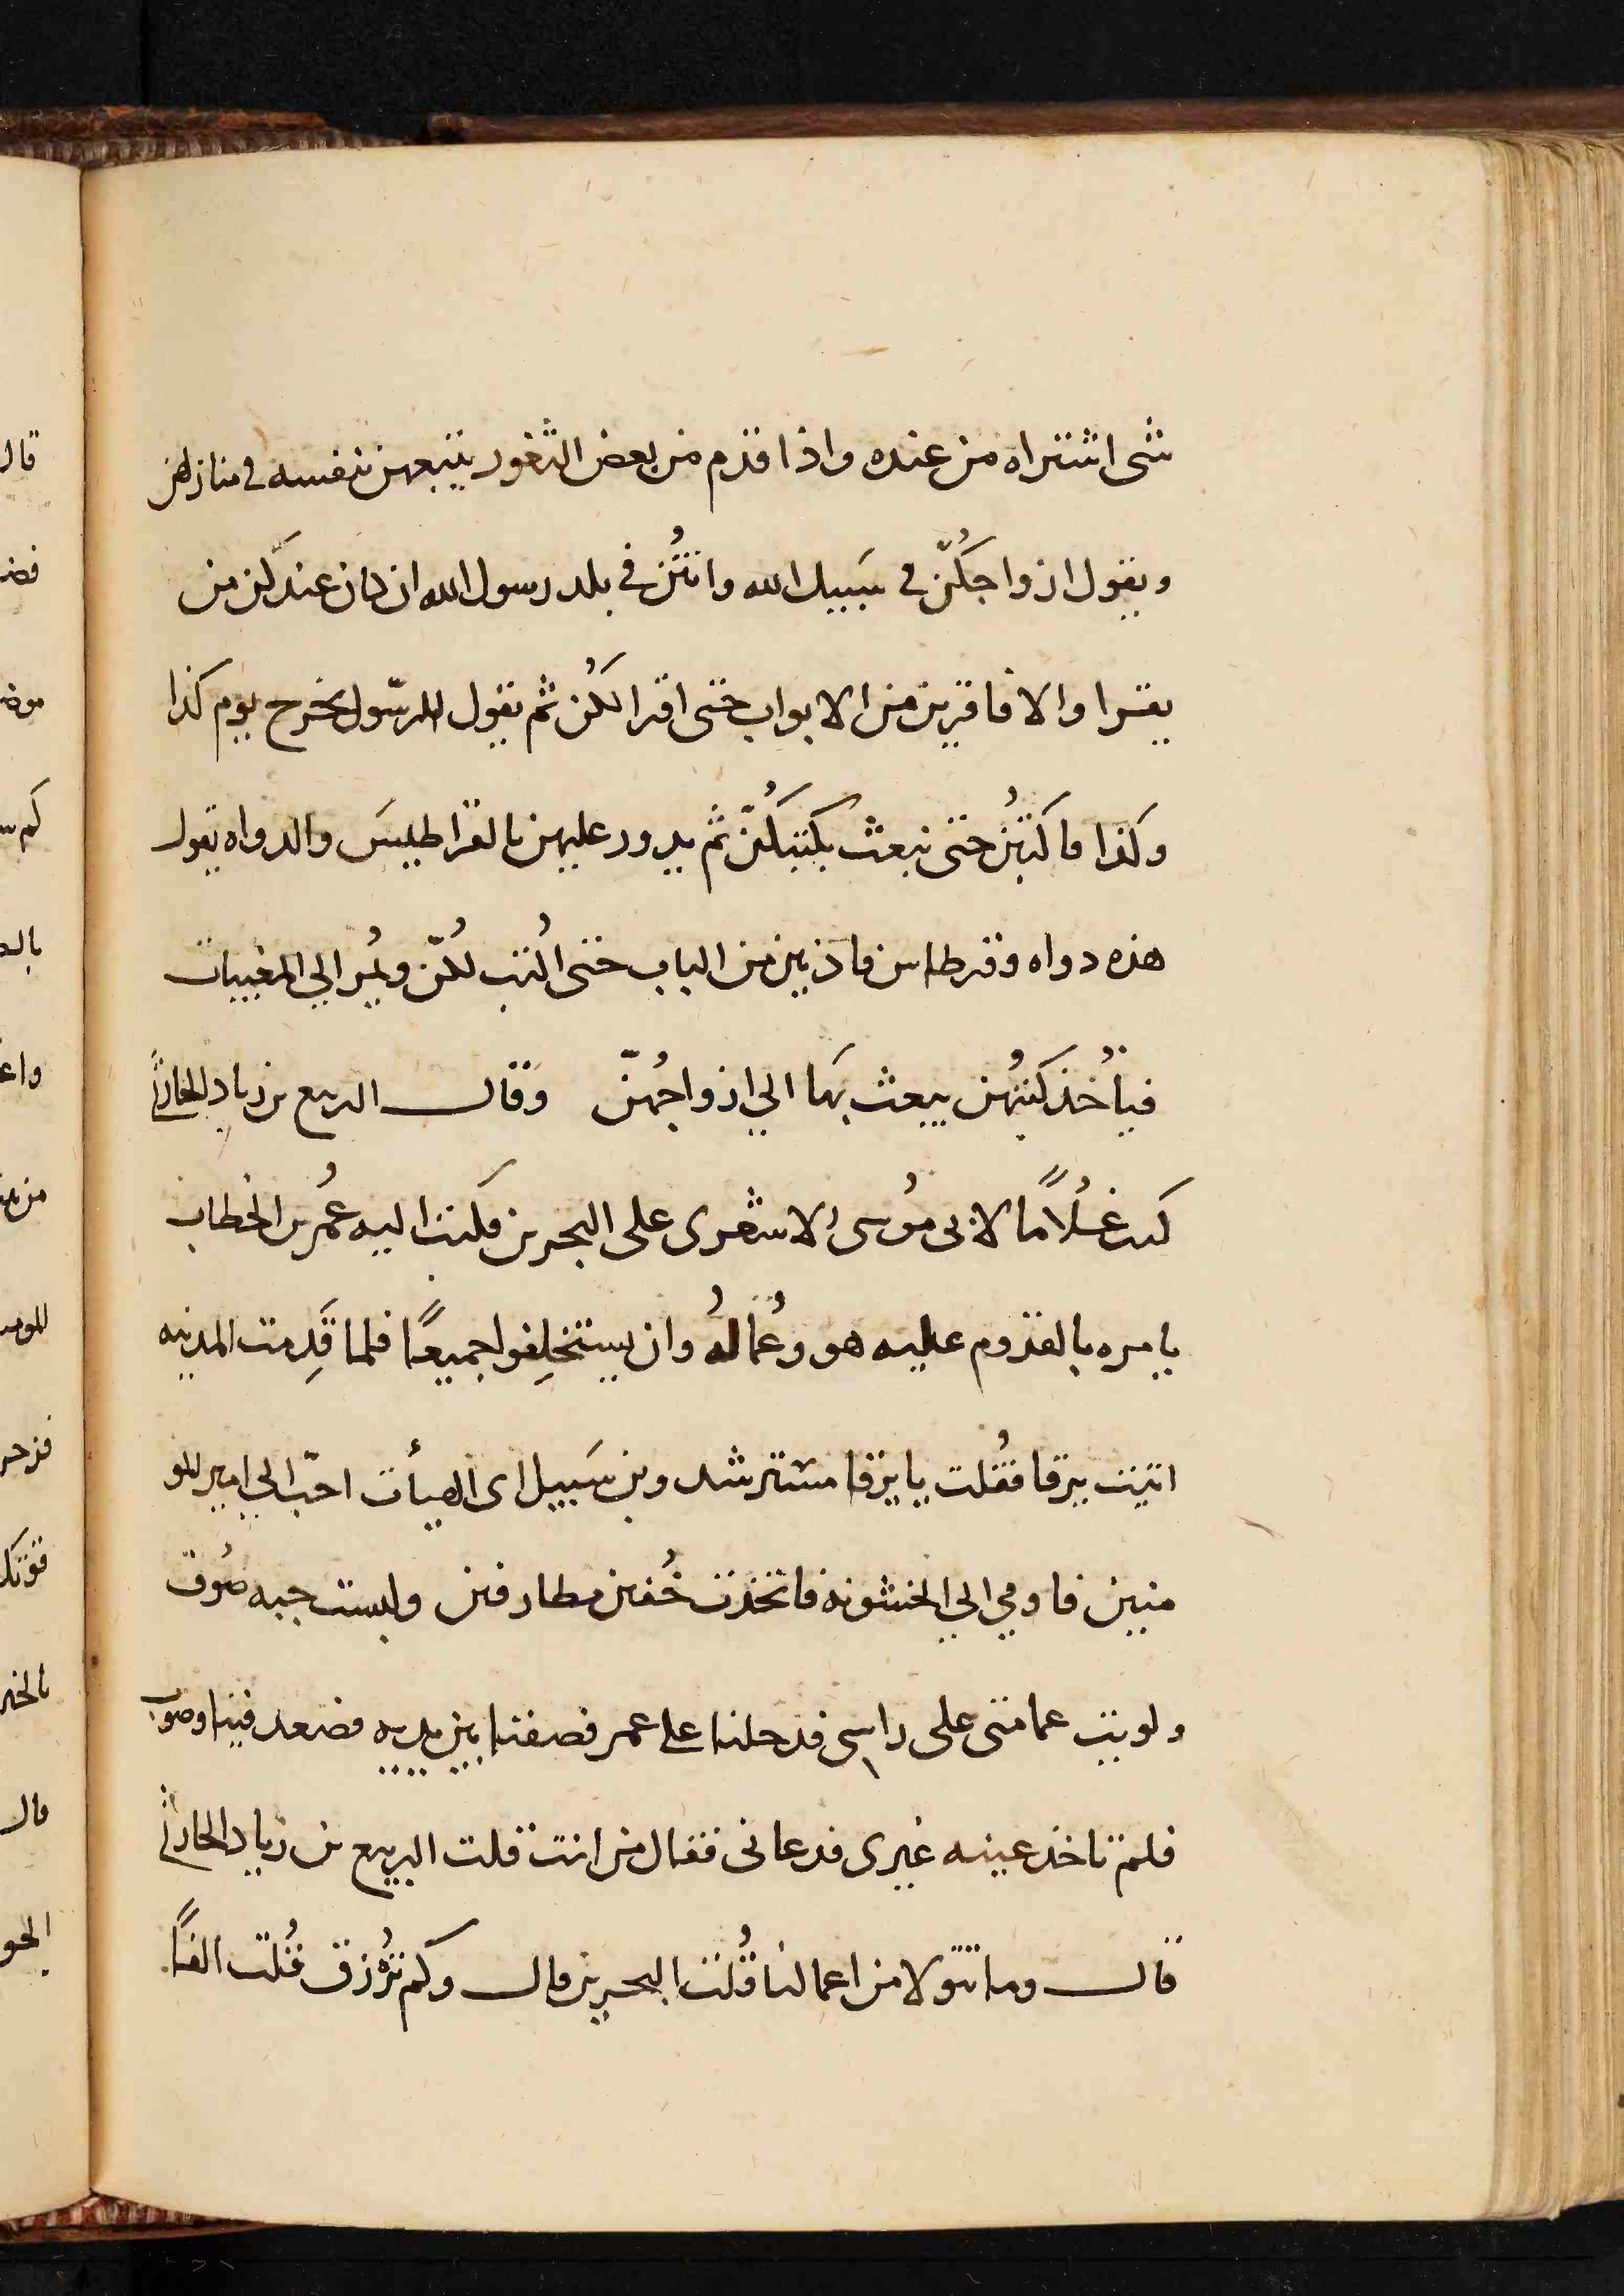 شى اشتراه من عنده واذا قدم من بعض الثغور يتبعهن بنفسه فى منازلهن
ويقول ازواجكُنّ فى سَبيل الله وانتُن في بلد رسول الله ان كان عندكن من
يقرا والا فاقربن من الابواب حتى اقرا لكُن ثم يقول الرسّول يخرج يوم كذا
وكذا فاكتبُن حتى نبعث بكتبكُنّ ثم يدور عليهن بالقراطيسَ والدواه يقول
هذه دواه وقرطاس فاذنين من الباب حتى اكُتب لكُنّ ويمُر الي المغيبات
فيأخُذ كتبهُن يبعث بهَا الي ازواجهُنّ وقال الربيع بن زياد الحارثى
كنت غلُامًا لابى موُسى الاشعرى على البحرين فكتب اليه عُمر بن الخطاب
يامره بالقدوم عليه هو وعُماله وان يستخلِفوا جميعًا فلما قَدِمت المدينه
اتيت يرفا فقُلت يا يرفا مسترشد وبن سَبيل اى الهيأت احّب الي امير المو
منين فاومي الي الخشونه فاتخذت خُفين مطارفين ولبست جبه صُوف
ولويت عمامتى على راسى فدخلنا على عمر فصفنا بين يديه فصعد فينا وصوب
فلم تاخذ عينه غيرى فدعانى فقال من انت قلت الربيع بن زياد الحارثى
قال وما تتولا من اعمالنا قُلت البحرين قال وكم تُرزق قُلت الفًا